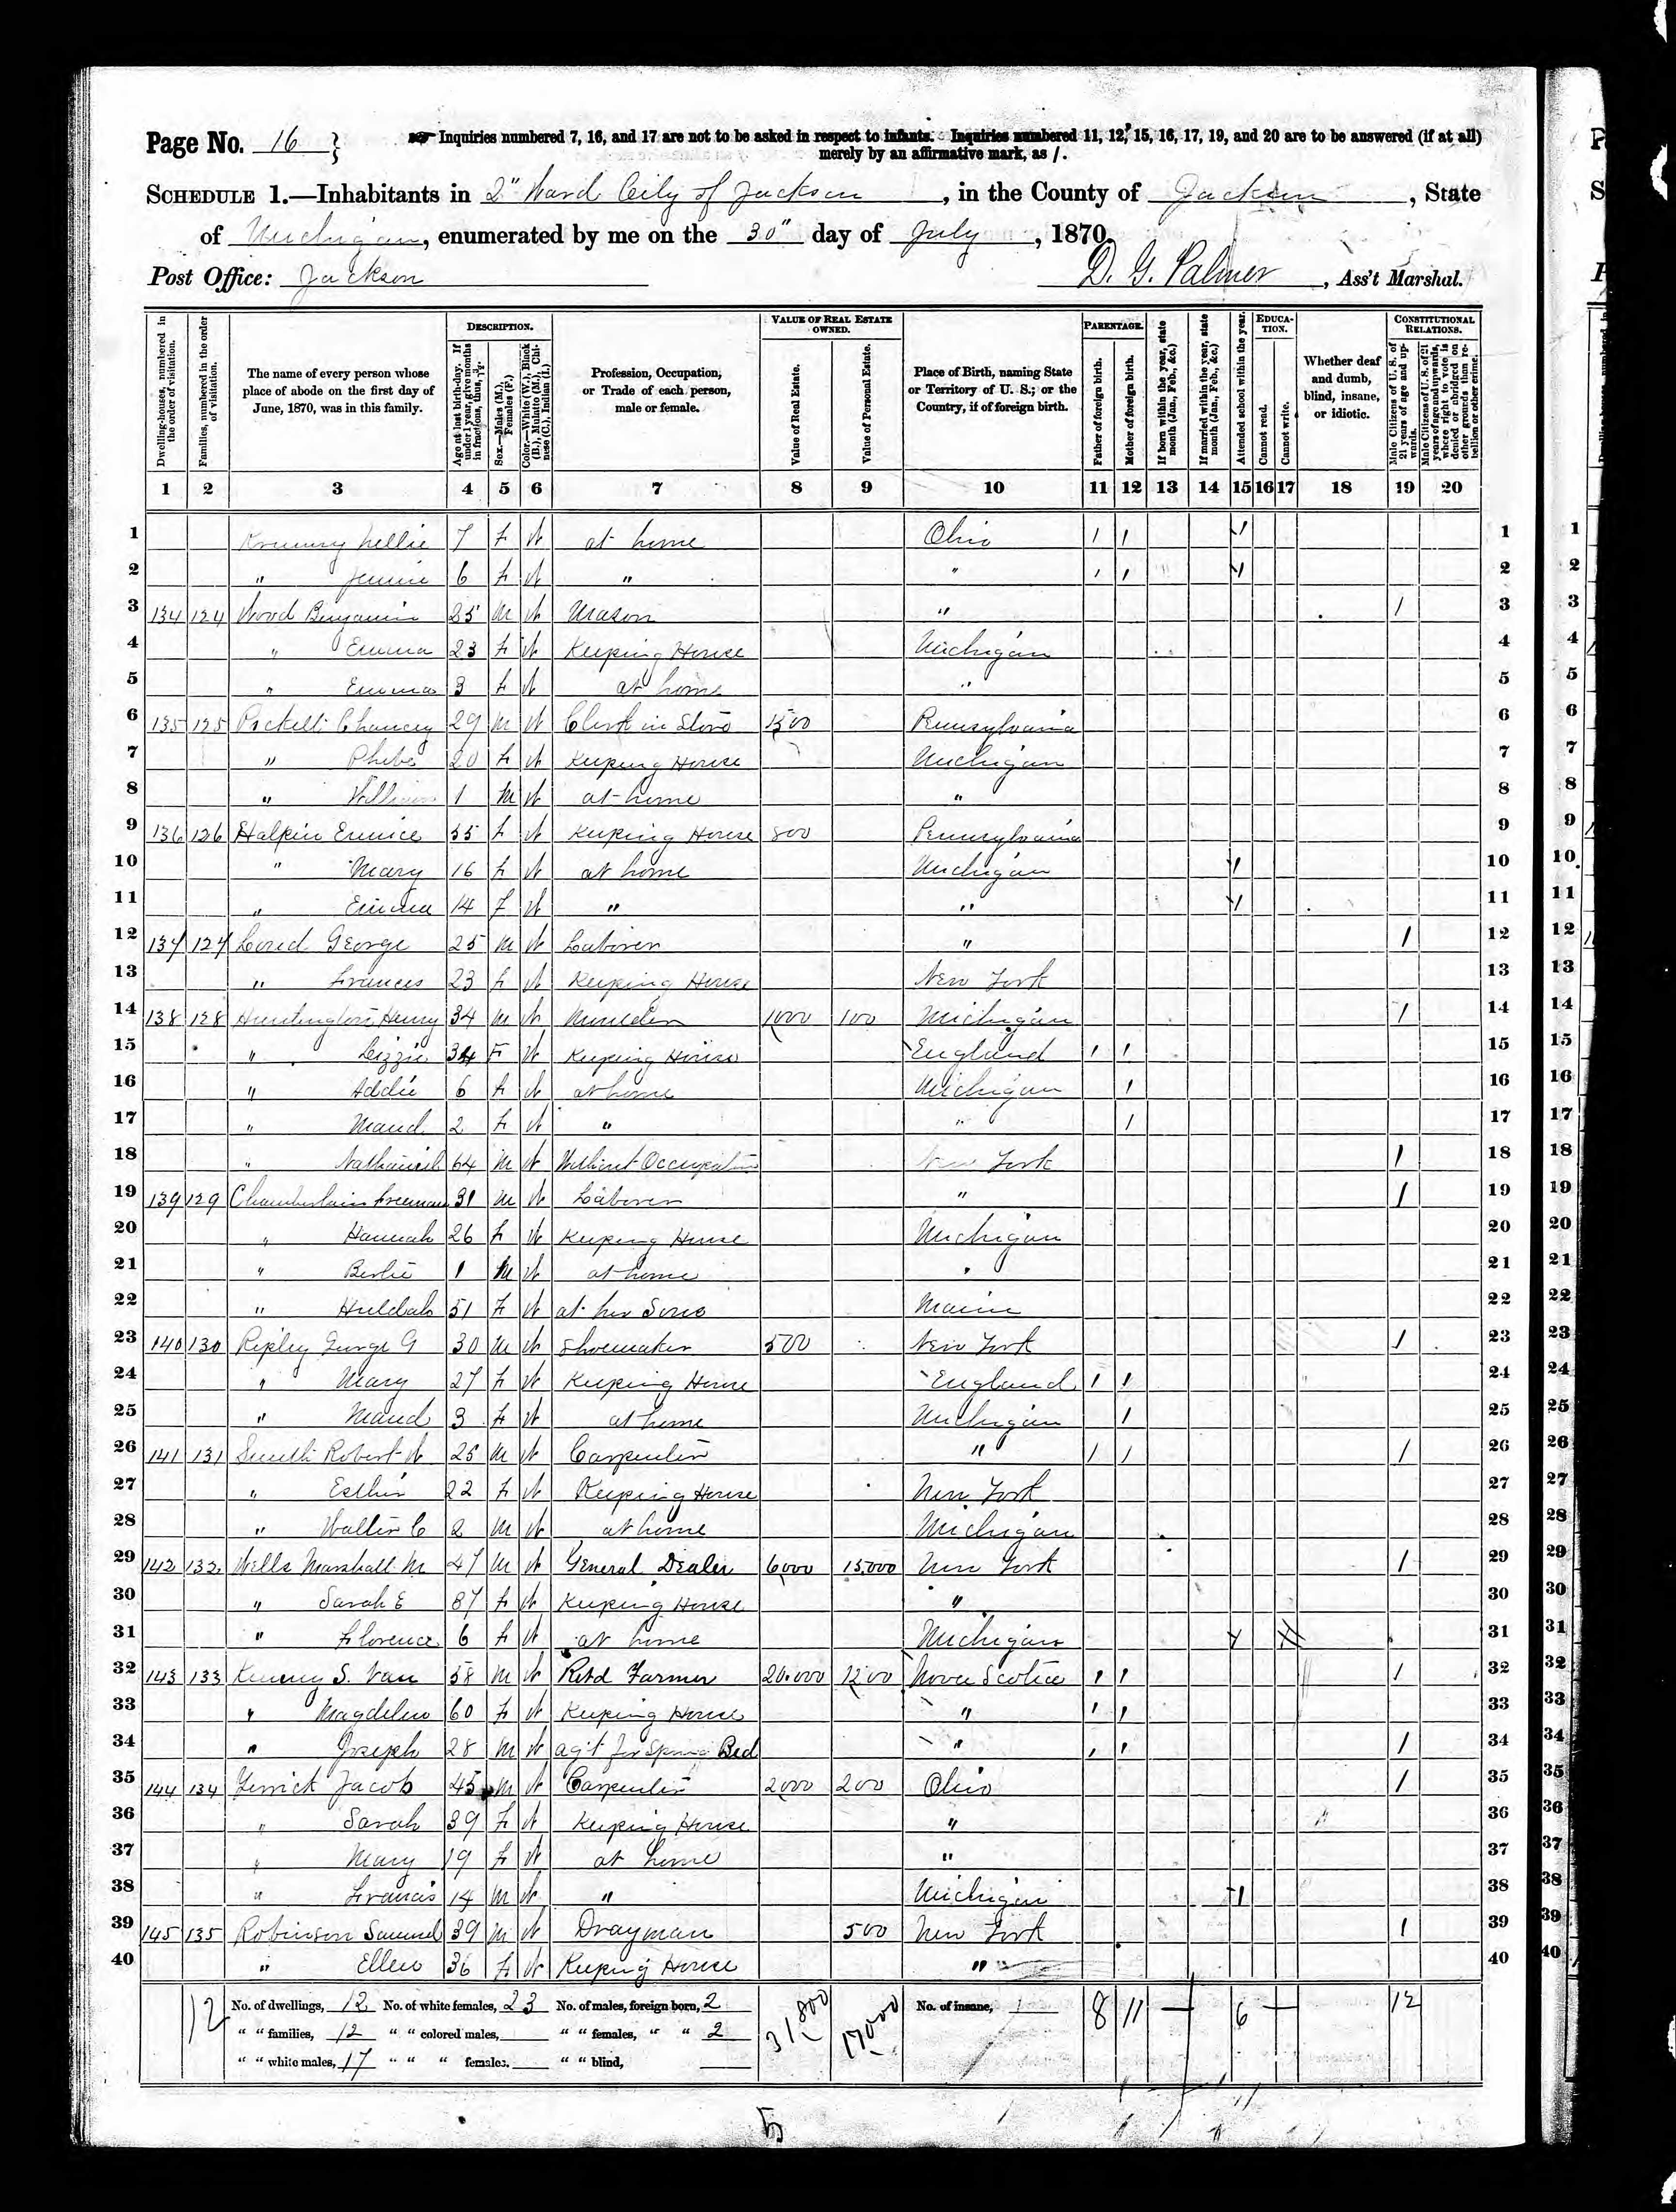 Page No. 16 }
Inquiries numbered 7, 16, and 17 are not to be asked in respect to infants. Inquiries numbered 11, 12, 15, 16, 17, 19, and 20 are to be answered (if at all)
merely by an affirmative mark, as /.
SCHEDULE 1.—Inhabitants in 2" Ward City of Jackson, in the County of Jackson, State
of Michigan, enumerated by me on the 30" day of July, 1870.
Post Office: Jackson D. G. Palmer, Ass't Marshal.
Dwelling-houses, numbered in the order of visitation.
Families, numbered in the order of visitation.
The name of every person whose place of abode on the first day of June, 1870, was in this family.
DESCRIPTION.
Age at last birth-day. If under 1 year, give months in fractions, thus, 3/12.
Sex.—Males (M.), Females (F.)
Color.—White (W.), Black (B.), Mulatto (M.), Chinese (C.), Indian (I.)
Profession, Occupation, or Trade of each person, male or female.
VALUE OF REAL ESTATE OWNED.
Value of Real Estate.
Value of Personal Estate.
Place of Birth, naming State or Territory of U. S.; or the Country, if of foreign birth.
PARENTAGE.
Father of foreign birth.
Mother of foreign birth.
If born within the year, state month (Jan., Feb., &c.)
If married within the year, state month (Jan., Feb., &c.)
Attended school within the year.
EDUCATION.
Cannot read.
Cannot write.
Whether deaf and dumb, blind, insane, or idiotic.
CONSTITUTIONAL RELATIONS.
Male Citizens of U. S. of 21 years of age and upwards.
Male Citizens of U. S. of 21 years of age and upwards, where right to vote is denied or abridged on other grounds than rebellion or other crime.
1 2 3 4 5 6 7 8 9 10 11 12 13 14 15 16 17 18 19 20
1 Nellie 7 F W at home Ohio / / / 1
2 " Jennie 6 F W " " / / / 2
3 134 124 Wood Benjamin 25 M W Mason " / 3
4 " Emma 23 F W Keeping House Michigan 4
5 " Emma 3 F W at home " 5
6 135 125 Chancey 29 M W Clerk in Store 1500 Pennsylvania 6
7 " Phebe 20 F W Keeping House Michigan 7
8 " William 1 M W at home " 8
9 136 126 Halpin Eunice 55 F W Keeping House 800 Pennsylvania 9
10 " Mary 16 F W at home Michigan / 10
11 " Emma 14 F W " " / 11
12 137 127 Loud George 25 M W Laborer " / 12
13 " Frances 23 F W Keeping House New York 13
14 138 128 Huntington Henry 34 M W Moulder 1000 100 Michigan / 14
15 " Lizzie 34 F W Keeping House England / / 15
16 " Addie 6 F W at home Michigan / 16
17 " Maud 2 F W " " / 17
18 " Nathaniel 64 M W Without Occupation New York / 18
19 139 129 Chamberlain Freeman 31 M W Laborer " / 19
20 " Hannah 26 F W Keeping House Michigan 20
21 " Bertie 1 M W at home " 21
22 " Huldah 51 F W at her Sons Maine 22
23 140 130 Ripley George G 30 M W Shoemaker 500 New York / 23
24 " Mary 27 F W Keeping House England / / 24
25 " Maud 3 F W at home Michigan / 25
26 141 131 Smith Robert W 25 M W Carpenter " / / / 26
27 " Esther 22 F W Keeping House New York 27
28 " Walter C 2 M W at home Michigan 28
29 142 132 Wells Marshall M 47 M W General Dealer 6000 15,000 New York / 29
30 " Sarah E 37 F W Keeping House " 30
31 " Florence 6 F W at home Michigan / 31
32 143 133 Kenney S. Van 58 M W Retd Farmer 20.000 1200 Nova Scotia / / / 32
33 " Magdelen 60 F W Keeping House " / / 33
34 " Joseph 28 M W agt for Spring Bed " / / / 34
35 144 134 Jacob 45 M W Carpenter 2000 200 Ohio / 35
36 " Sarah 39 F W Keeping House " 36
37 " Mary 19 F W at home " 37
38 " Francis 14 M W " Michigan / 38
39 145 135 Robinson Samuel 39 M W Drayman 500 New York / 39
40 " Ellen 36 F W Keeping House " 40
12 No. of dwellings, 12 No. of white females, 23 No. of males, foreign born, 2 31,800 17,000 No. of insane, 8 11 6 12
" " families, 12 " " colored males, " " females, " " 2
" " white males, 17 " " " females, " " blind,